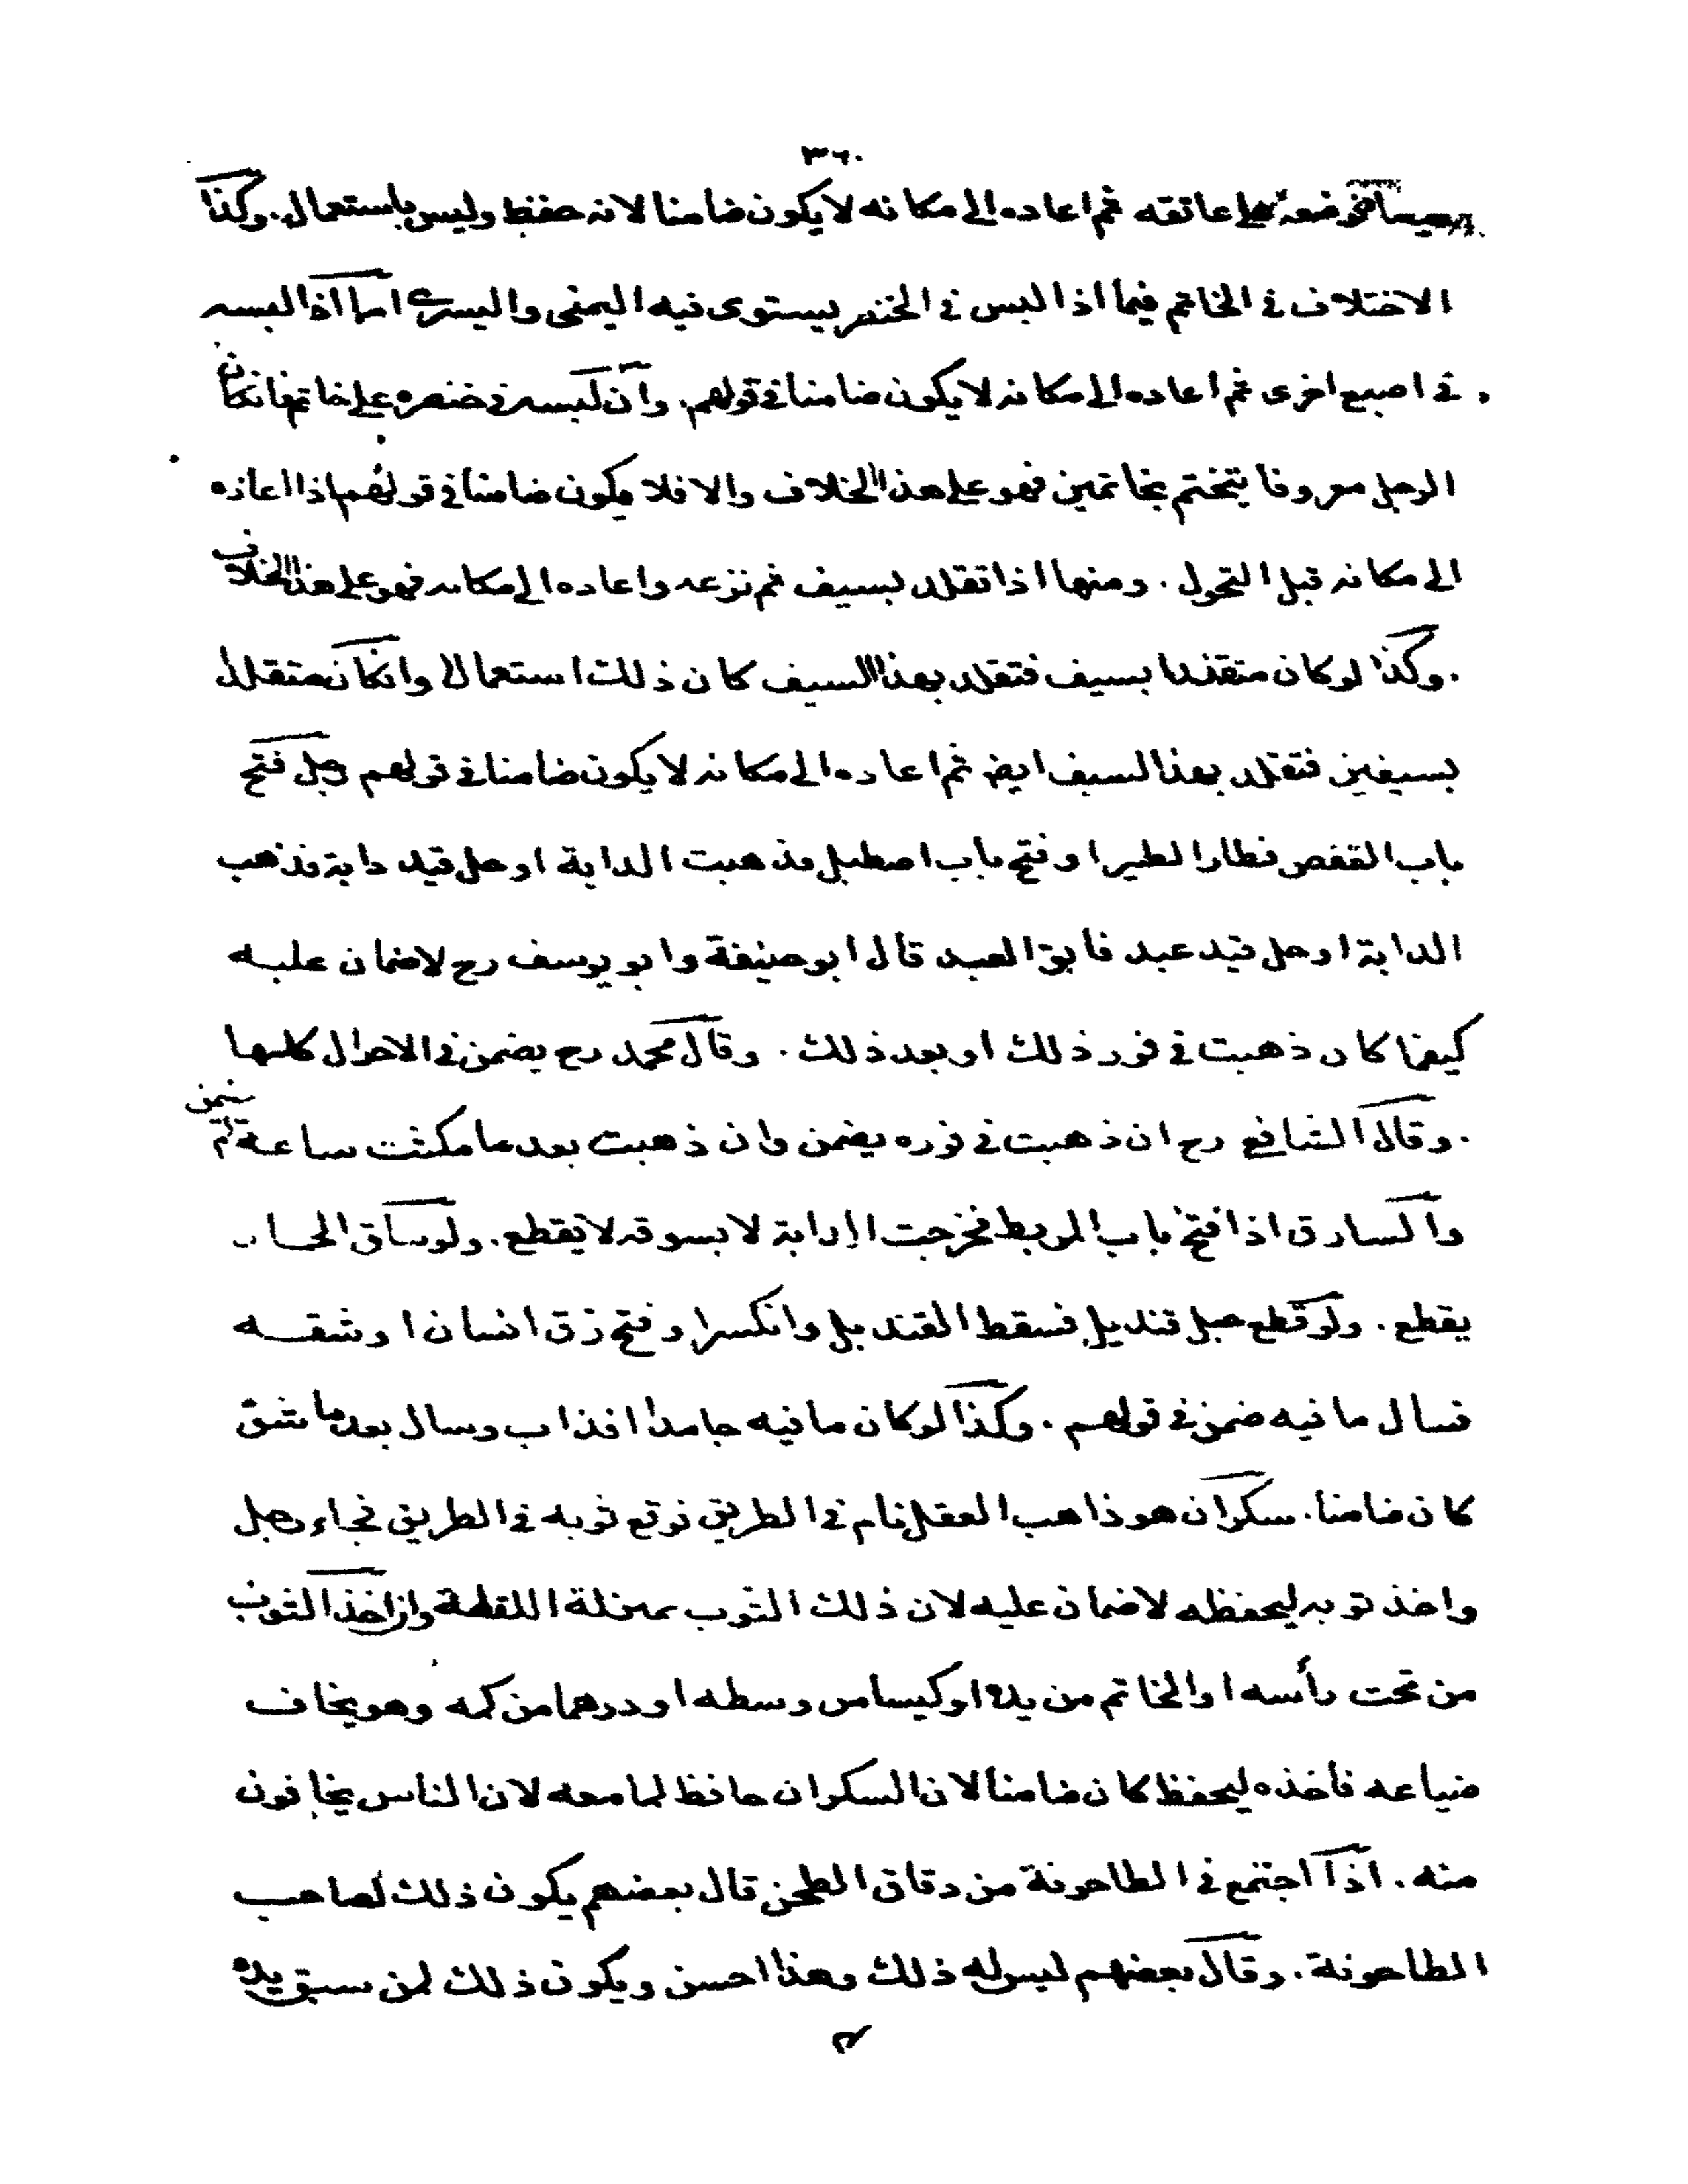 ٣٦٠
فوضعه على عاتقه ثم اعاده الى مكانه لا يكون ضامنا لانه حفظ وليس باستعمال. وكذا
الاختلاف فى الخاتم فيما اذا لبس فى الخنصر يستوى فيه اليمنى واليسرى اما اذا لبسه
فى اصبع اخرى ثم اعاده الى مكانه لا يكون ضامنا فى قولهم. وان لبسه فى خنصره على خاتم فانكان
الرجل معروفا يتختم بخاتمين فهو على هذا الخلاف والا فلا يكون ضامنا فى قولهم اذا اعاده
الى مكانه قبل التحول. ومنها اذا تقلد بسيف ثم نزعه واعاده الى مكانه فهو على هذا الخلاف
. وكذا لو كان متقلدا بسيف فتقلد بهذا السيف كان ذلك استعمالا وانكان متقلدا
بسيفين فتقلد بهذا السيف ايض ثم اعاده الى مكانه لا يكون ضامنا فى قولهم رجل فتح
باب القفص فطار الطير او فتح باب اصطبل فذهبت الدابة او حل قيد دابة فذهب
الدابة او حل قيد عبد فابق العبد قال ابو حنيفة وابو يوسف رح لا ضمان عليه
كيفما كان ذهبت فى فور ذلك او بعد ذلك. وقال محمد رح يضمن فى الاحوال كلها
. وقال الشافع رح ان ذهبت فى فوره يضمن وان ذهبت بعد ما مكثت ساعة لم يضمن
والسارق اذا فتح باب المربط فخرجت الدابة لا بسوقه لا يقطع. ولو ساق الحمار
يقطع. ولو قطع حبل قنديل فسقط القنديل وانكسر او فتح زق انسان او شقه
فسال ما فيه ضمن فى قولهم. وكذا لو كان ما فيه جامدا فذاب وسال بعد ما شق
كان ضامنا. سكران هو ذاهب العقل نام فى الطريق فوقع ثوبه فى الطريق فجاء رجل
واخذ ثوبه ليحفظه لا ضمان عليه لان ذلك الثوب بمنزلة اللقطة وان اخذ الثوب
من تحت رأسه او الخاتم من يده او كيسا من وسطه او درهما من كمه وهو يخاف
ضياعه فاخذه ليحفظ كان ضامنا لان السكران حافظ لما معه لان الناس يخافون
منه. اذا اجتمع فى الطاحونة من دقاق الطحن قال بعضهم يكون ذلك لصاحب
الطاحونة. وقال بعضهم ليس له ذلك وهذا احسن ويكون ذلك لمن سبق يده